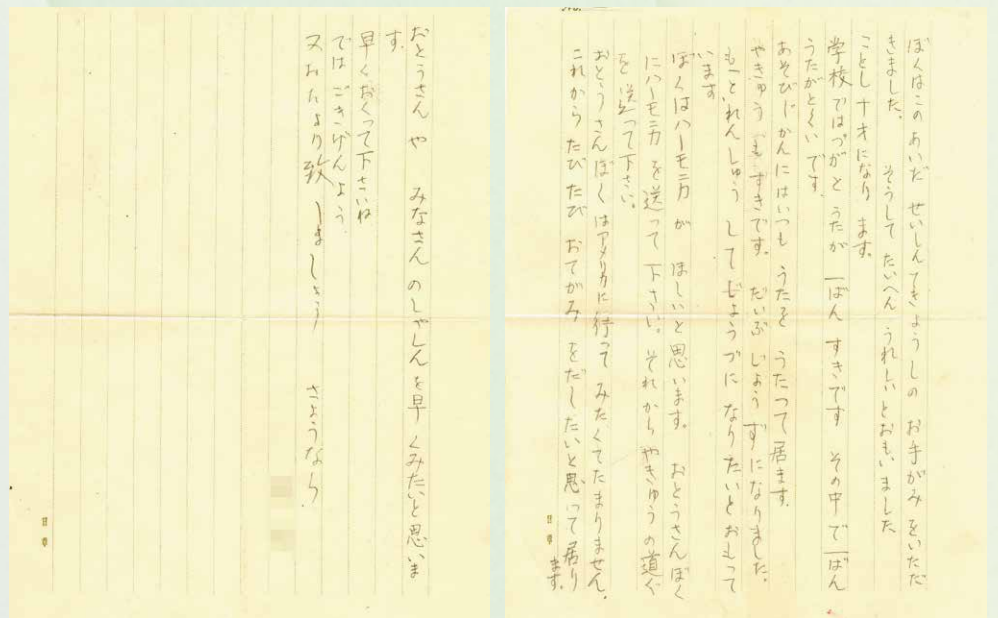 ぼくはこのあいだ せいしんてきようしの お手がみをいただ
きました。 そうして たいへん うれしいとおもいました
ことし十才になり ます。
学校ではづがと うたが 一ばん すきです その中で一ばん
うたがとくいです。
あそびじかんにはいつも うたを うたって居ます。
やきゅう もすきです。 だいぶ じょう ずになりました。
もっとれんしゅう して じょうづに なりたいとおもって
います
ぼくはハーモニカ が ほしいと思います。 おとうさんぼく
にハーモニカ を送って 下さい。 それから やきゅうの道ぐ
を 送って下さい。
おとうさんぼくはアメリカに行って みたくてたまりません。
これから たびたび おてがみ をだしたいと思って居り
ます。
おとうさん や みなさん のしゃしんを早 くみたいと思いま
す。
早くおくって下さいね
では ごきげんよう
又おたより致 しましょう さようなら.